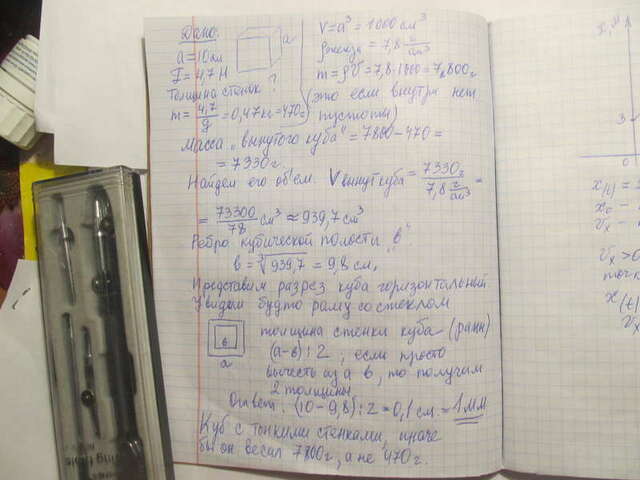 Дано:
a = 10 см
F = 4,7 Н
a
V = a³ = 1000 см³
ρжелеза = 7,8 г/см³
m = ρV = 7,8·1000 = 7800 г
Толщина стенок ?
(это если внутри нет
m = 4,7/g = 0,47 кг = 470 г
пустоты)
Масса „вынутого куба" = 7800 - 470 =
= 7330 г.
Найдем его об'ем. V вынут куба = 7330 г / 7,8 г/см³ =
= 73300/78 см³ ≈ 939,7 см³
Ребро кубической полости „в"
в = ∛939,7 = 9,8 см,
Представим разрез куба горизонтальный
Увидим будто раму со стеклом
в
a
толщина стенки куба (рамы)
(a-в):2 ; если просто
вычесть из a в, то получим
2 толщины
Ответ: (10-9,8):2 = 0,1 см. = 1 мм
Куб с тонкими стенками, иначе
бы он весил 7800 г, а не 470 г.
3
0